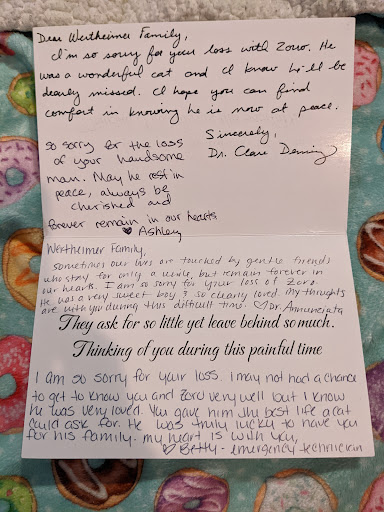 Dear Wertheimer Family,
I'm so sorry for your loss with Zoro. He
was a wonderful cat and I know he'll be
dearly missed. I hope you can find
comfort in knowing he is now at peace.
Sincerely,
Dr. Clare Deming
so sorry for the loss
of your handsome
man. May he rest in
peace, always be
cherished and
forever remain in our hearts
♥ Ashley
Wertheimer Family,
sometimes our lives are touched by gentle friends
who stay for only a while, but remain forever in
our hearts. I am so sorry for your loss of Zoro.
He was a very sweet boy & so clearly loved. My thoughts
are with you during this difficult time. ♡ Dr. Annunziata
They ask for so little yet leave behind so much.
Thinking of you during this painful time
I am so sorry for your loss. I may not had a chance
to get to know you and Zoro very well but I know
he was very loved. You gave him the best life a cat
could ask for. He was truly lucky to have you
for his family. my heart is with you,
♡ Betty - emergency technician